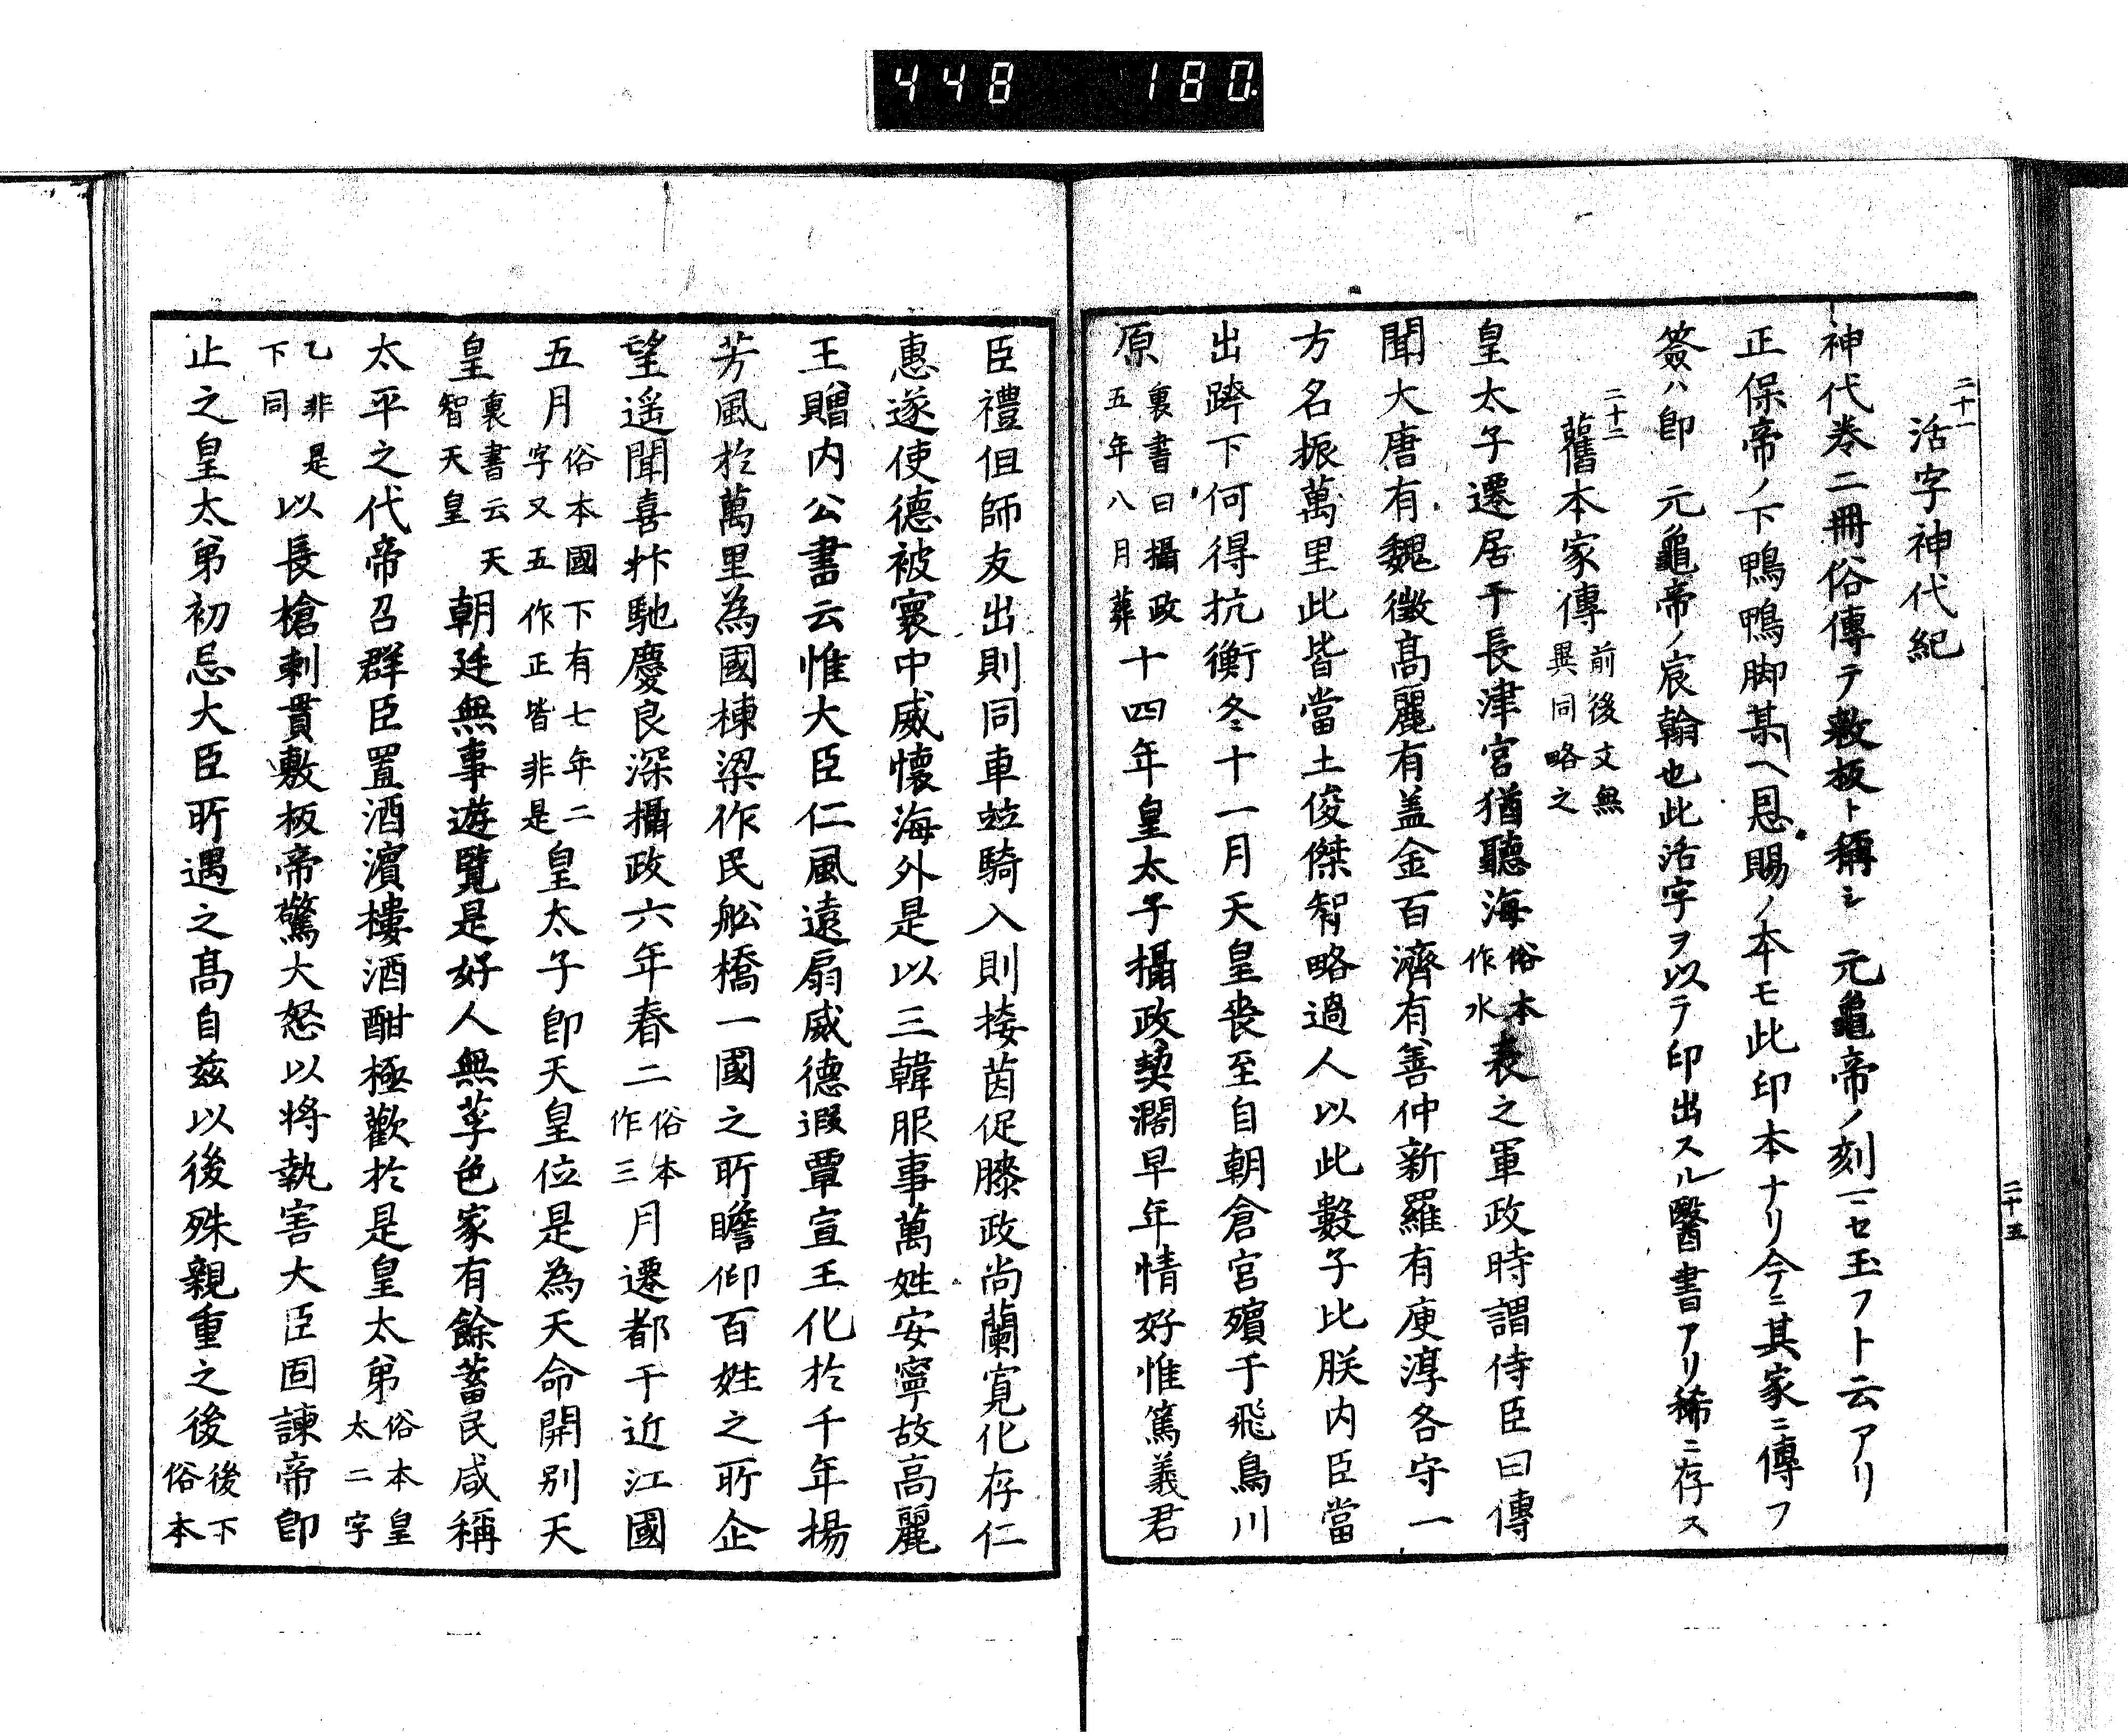 448 180
二十一
活字神代紀
神代卷二冊俗傳テ敷板ト稱シ 元龜帝ノ刻ニセ玉フト云アリ
正保帝ノ下鴨鴨脚某ヘ恩賜ノ本モ此印本ナリ今ニ其家ニ傳フ
簽ハ卽 元龜帝ノ宸翰也此活字ヲ以テ印出スル醫書アリ稀ニ存ス
二十二
舊本家傳 前後文無異同略之
皇太子遷居于長津宮猶聽海 俗本作水 表之軍政時謂侍臣曰傳
聞大唐有魏徵高麗有盖金百濟有善仲新羅有庾淳各守一
方名振萬里此皆當土俊傑智略過人以此數子比朕内臣當
出跨下何得抗衡冬十一月天皇喪至自朝倉宮殯于飛鳥川
原 裏書曰攝政五年八月葬 十四年皇太子攝政契濶早年情好惟篤義君
二十五
臣禮但師友出則同車竝騎入則接茵促膝政尚蘭寛化存仁
惠遂使德被寰中威懷海外是以三韓服事萬姓安寧故高麗
王贈内公書云惟大臣仁風遠扇威德遐覃宣王化於千年揚
芳風於萬里為國棟梁作民舩橋一國之所瞻仰百姓之所企
望遥聞喜抃馳慶良深攝政六年春二 俗本作三 月遷都于近江國
五月 俗本國下有七年二字又五作正皆非是 皇太子卽天皇位是為天命開別天
皇 裏書云天智天皇 朝廷無事遊覽是好人無莩色家有餘蓄民咸稱
太平之代帝召群臣置酒濱樓酒酣極歡於是皇太弟 俗本皇太二字
乙非是下同 以長槍刺貫敷板帝驚大怒以将執害大臣固諫帝卽
止之皇太弟初忌大臣所遇之高自茲以後殊親重之後 後下俗本